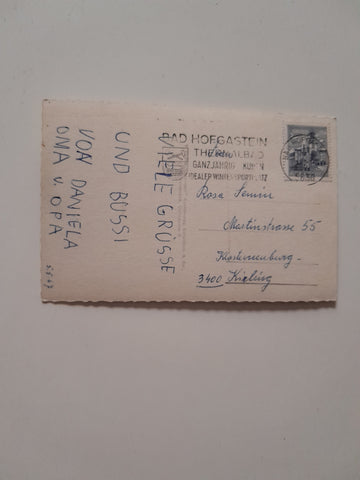 BAD HOFGASTEIN
THERMALBAD
GANZJÄHRIG KUREN
IDEALER WINTERSPORTPLATZ
Rosa
Martinstrasse 55
Klosterneuburg-
3400 Kierling
VIELE GRÜSSE
UND BUSSI
VON DANIELA
OMA u. OPA